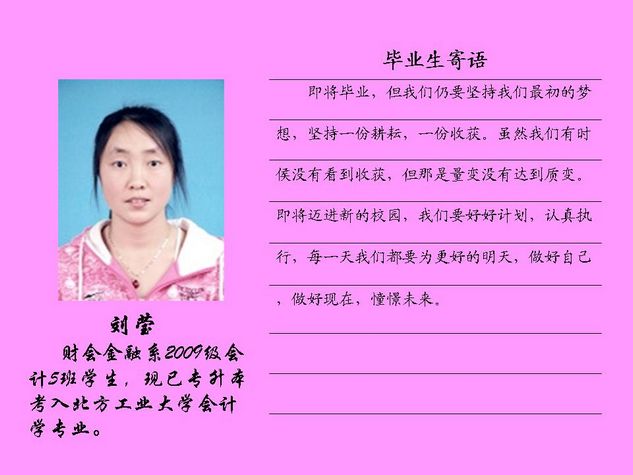 毕业生寄语
即将毕业，但我们仍要坚持我们最初的梦
想，坚持一份耕耘，一份收获。虽然我们有时
侯没有看到收获，但那是量变没有达到质变。
即将迈进新的校园，我们要好好计划，认真执
行，每一天我们都要为更好的明天，做好自己
，做好现在，憧憬未来。
刘莹
财会金融系2009级会
计5班学生，现已专升本
考入北方工业大学会计
学专业。